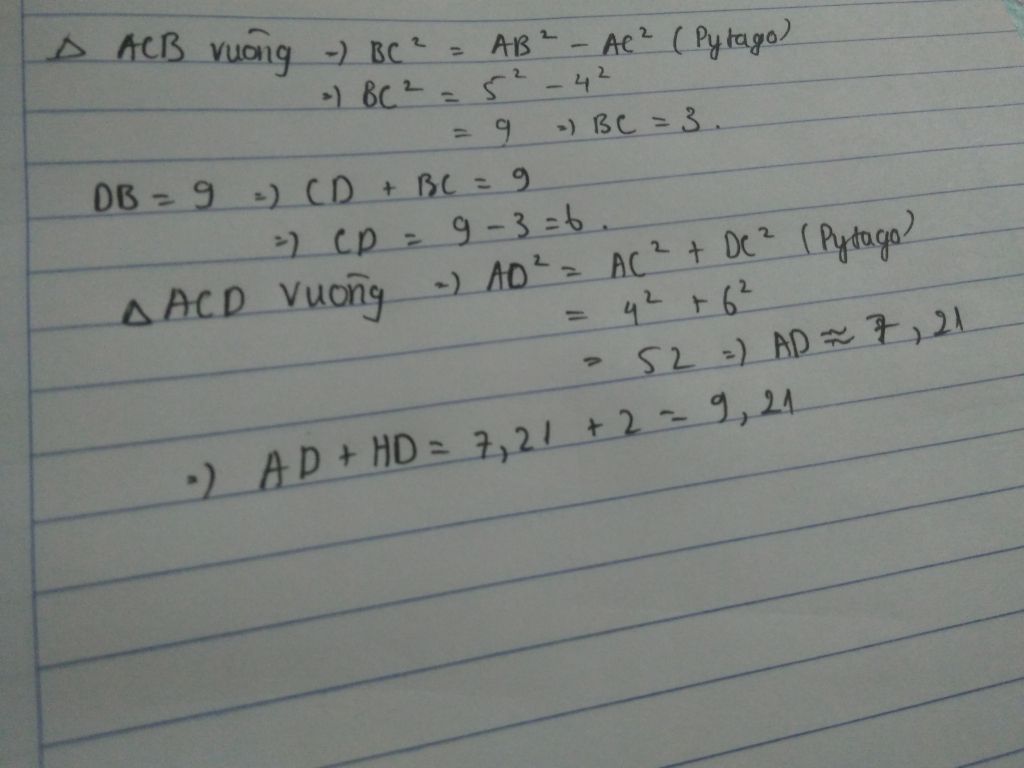 Δ ACB vuông => BC² = AB² - AC² (Pytago)
=> BC² = 5² - 4²
= 9 => BC = 3.
DB = 9 => CD + BC = 9
=> CD = 9 - 3 = 6.
Δ ACD vuông => AD² = AC² + DC² (Pytago)
= 4² + 6²
= 52 => AD ≈ 7,21
=> AD + HD = 7,21 + 2 = 9,21